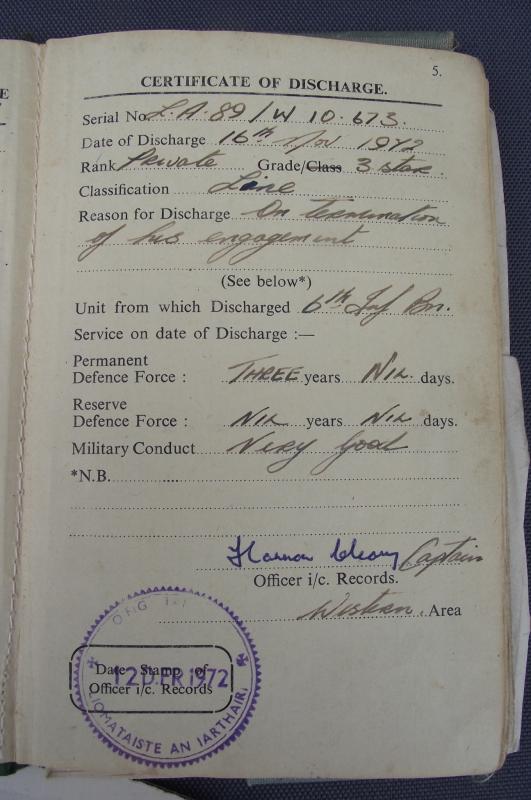 5.
CERTIFICATE OF DISCHARGE.
Serial No. L.A. 89/W 10.673.
Date of Discharge 16th Nov 1972
Rank Private Grade/Class 3 star.
Classification Line
Reason for Discharge On termination
of his engagement
(See below*)
Unit from which Discharged 6th Inf Bn.
Service on date of Discharge :—
Permanent
Defence Force : THREE years NIL days.
Reserve
Defence Force : NIL years NIL days.
Military Conduct Very Good
*N.B.
Captain
Officer i/c. Records.
Western. Area
Date Stamp of
12 1972
Officer i/c. Records
AN IARTHAIR
E